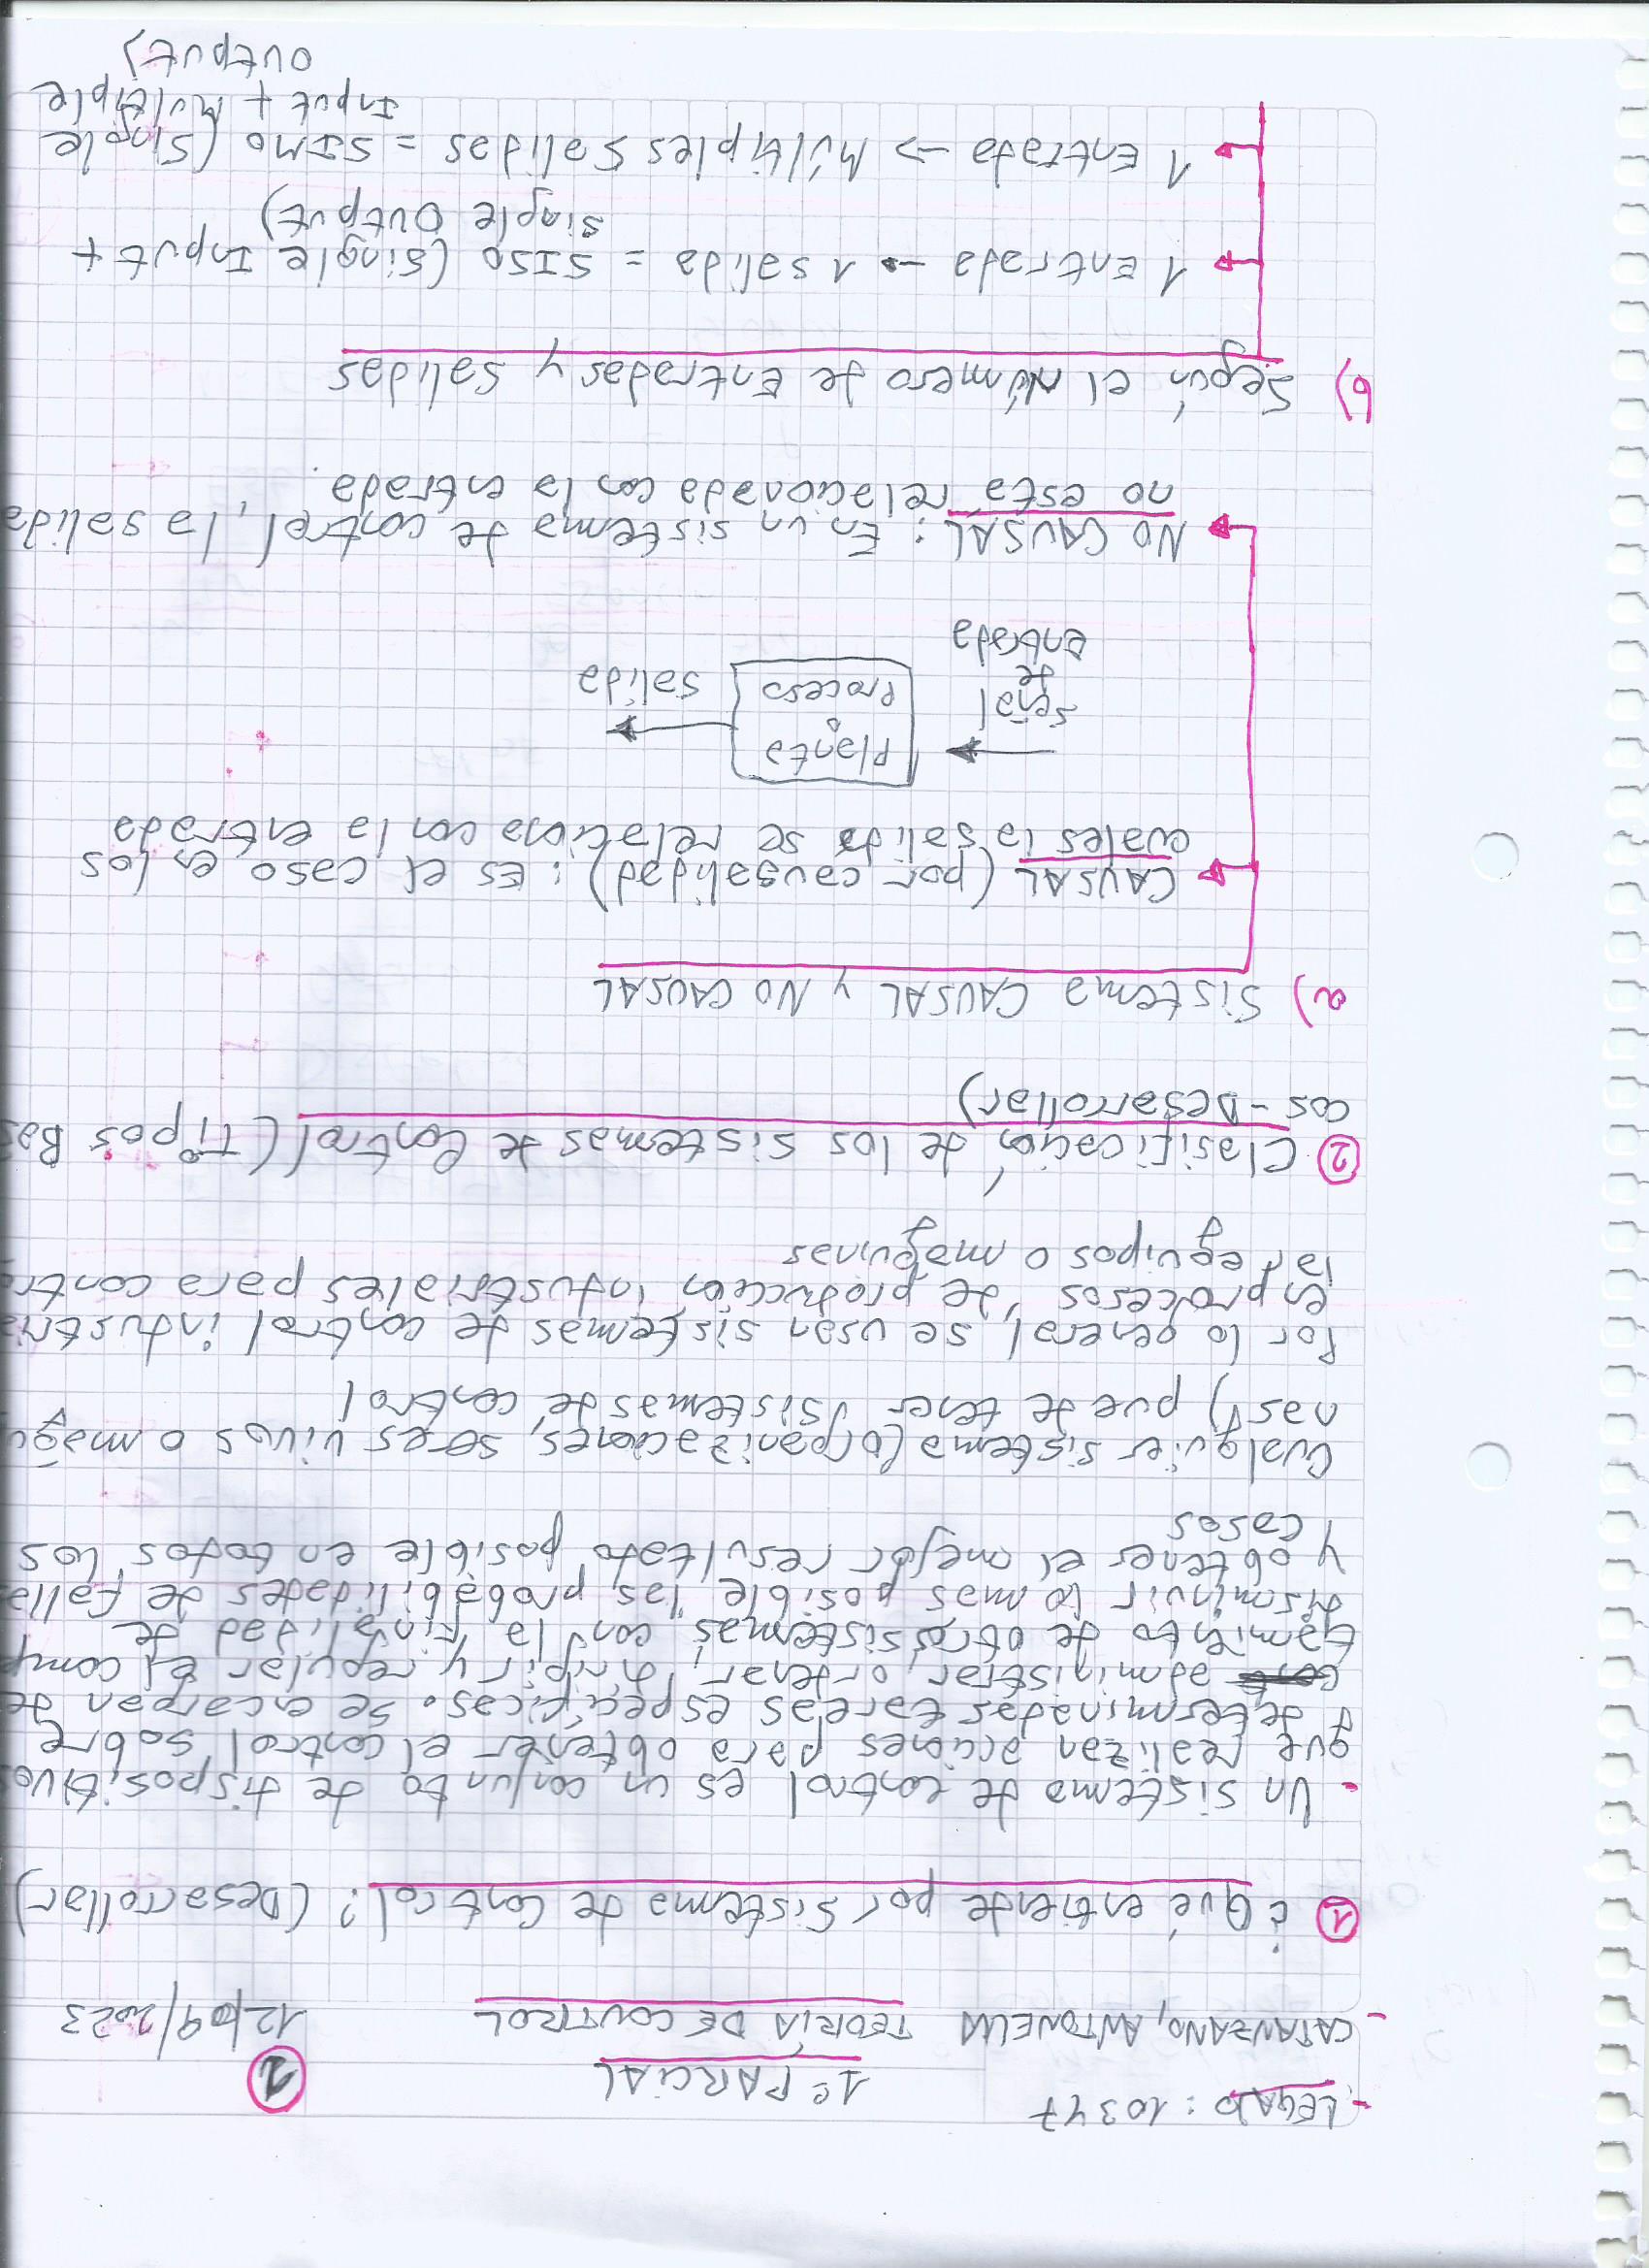 - LEGAJO : 10347
1º PARCIAL
1
- CATANZANO, ANTONELLA
TEORÍA DE CONTROL
12/09/2023
1 ¿Qué entiende por Sistema de Control? (Desarrollar)
- Un sistema de control es un conjunto de dispositivo
que realizan acciones para obtener el control sobre
determinadas tareas específicas. Se encargan de
administrar, ordenar, dirigir y regular el comp
tamiento de otros sistemas con la finalidad de
disminuir lo mas posible las probabilidades de falla
y obtener el mejor resultado posible en todos los
casos
Cualquier sistema (organizaciones, seres vivos o máqu
nas) puede tener sistemas de control
Por lo general, se usan sistemas de control industria
en procesos de producción industriales para contro
lar equipos o máquinas
2 Clasificación de los sistemas de Control (Tipos Bás
cos - Desarrollar)
a) Sistema CAUSAL y NO CAUSAL
CAUSAL (por causalidad) : Es el caso en los
cuales la salida se relaciona con la entrada
señal
de
Entrada
Planta
o
Proceso
salida
NO CAUSAL : En un sistema de control, la salida
no está relacionada con la entrada.
b) Según el Número de Entradas y Salidas
1 Entrada → 1 salida = SISO (Single Input +
Single Output)
1 Entrada → Múltiples Salidas = SIMO (Single
Input + Multiple
Output)